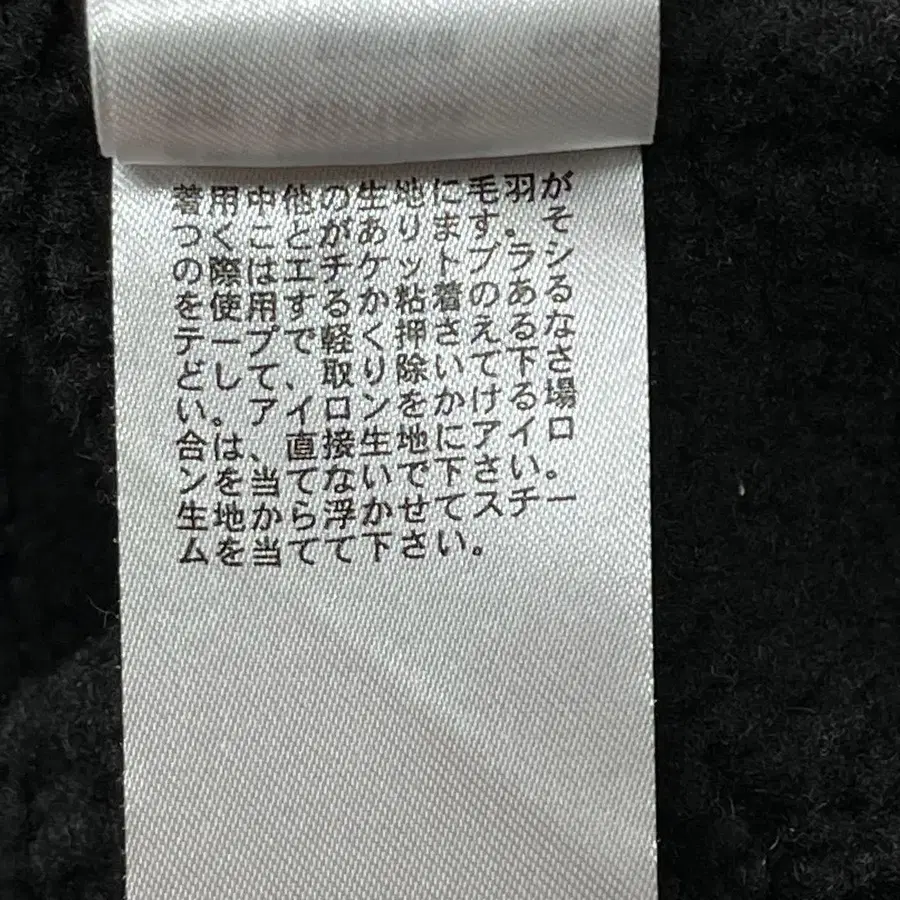 着用中他の生地に毛羽が
つくことがあります。そ
の際はエチケットブラシ
を使用するか粘着のある
テープで軽く押さえるな
どして、取り除いて下さ
い。アイロンをかける場
合は、直接生地にアイロ
ンを当てないで下さい。
生地から浮かせてスチー
ムを当てて下さい。